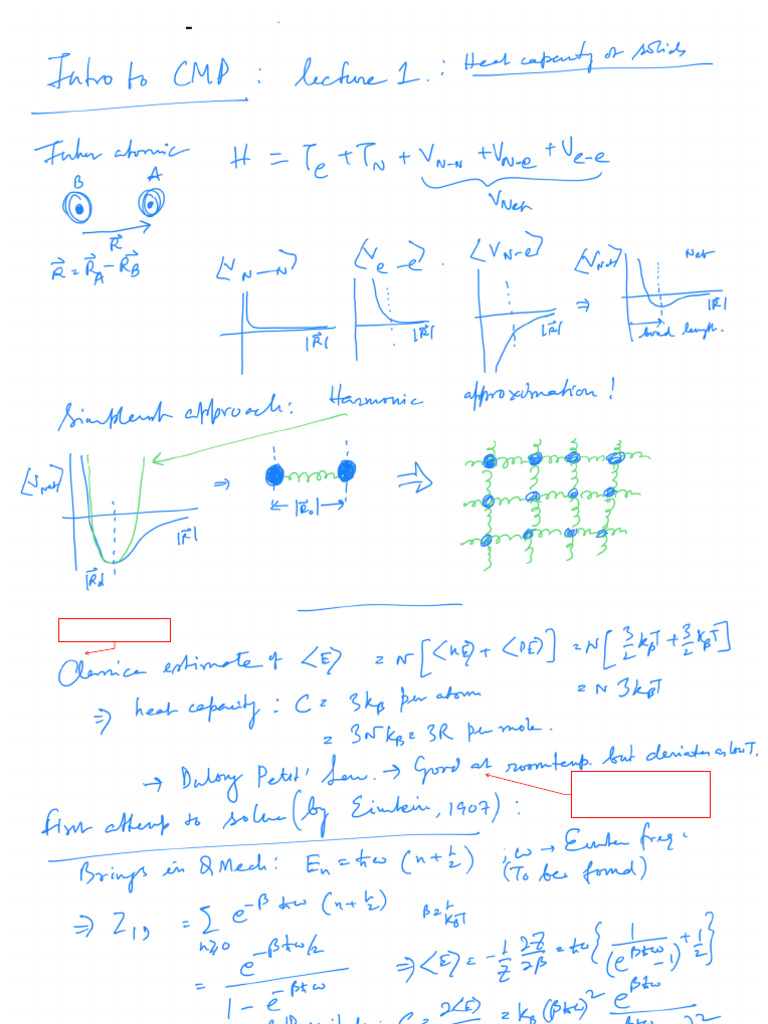 Intro to CMP : lecture 1. : Heat capacity of solids
Inter atomic H = T_e + T_N + V_{N-N} + V_{N-e} + V_{e-e}
V_{Net}
B A
R⃗
R⃗ = R⃗_A - R⃗_B
⟨V_{N-N}⟩ ⟨V_{e-e}⟩ . ⟨V_{N-e}⟩ ⟨V_{Net}⟩ Net
|R⃗| |R⃗| |R⃗| ⇒ |R⃗|
bond length.
Simplest approach: Harmonic approximation!
⟨V_{net}⟩ ⇒ ⇒
|R⃗| |R⃗_0|
|R⃗_0|
Classical estimate of ⟨E⟩ = N[⟨KE⟩ + ⟨PE⟩] = N[3/2 k_BT + 3/2 k_BT]
= N 3k_BT
⇒ heat capacity : C = 3k_B per atom
= 3Nk_B = 3R per mole.
→ Dulong Petit' Law. → Good at room temp. but deviates as low T.
First attempt to solve (by Einstein, 1907) :
Brings in Q Mech: E_n = ħω (n + 1/2) ; ω → Einstein freq.
(To be found)
⇒ Z_{1D} = Σ_{n≥0} e^{-βħω(n+1/2)} β = 1/k_BT
= e^{-βħω/2} / (1 - e^{-βħω}) ⇒ ⟨E⟩ = -1/Z ∂Z/∂β = ħω { 1/(e^{βħω} - 1) + 1/2 }
C = ∂⟨E⟩ = k_B (βħω)² e^{βħω}